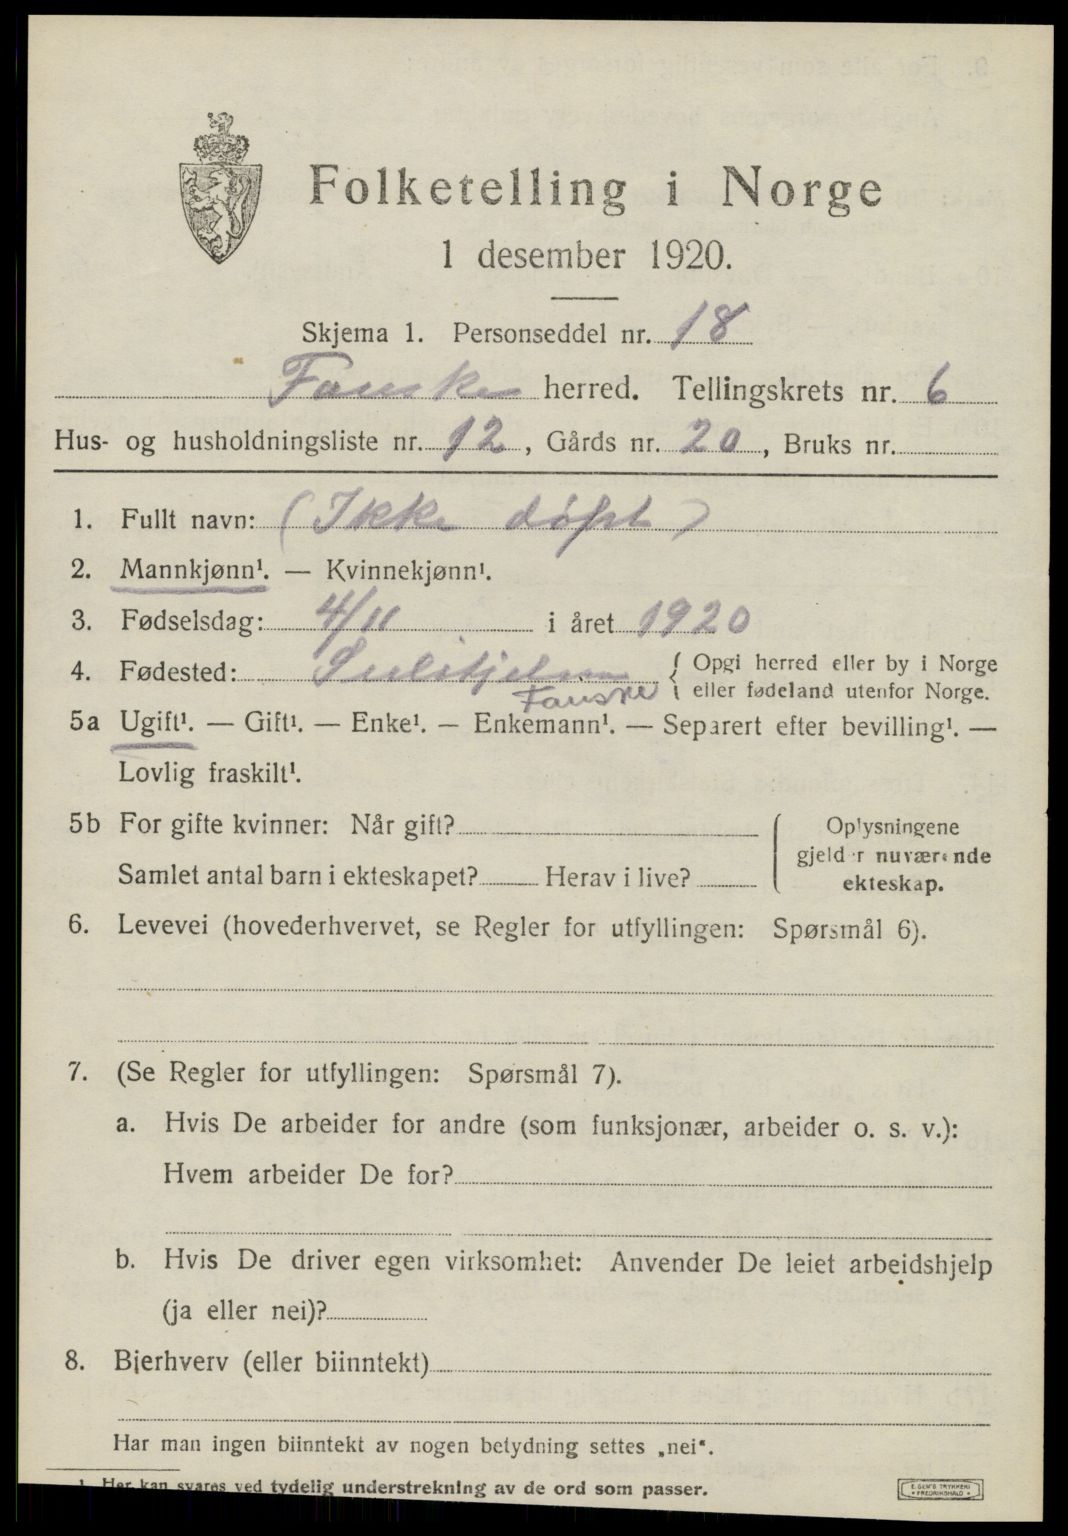 Folketelling i Norge
1 desember 1920.
Skjema 1. Personseddel nr. 18
Fauske herred. Tellingskrets nr. 6
Hus- og husholdningsliste nr. 12, Gårds nr. 20, Bruks nr.
1. Fullt navn: (Ikke døpt)
2. Mannkjønn¹. — Kvinnekjønn¹.
3. Fødselsdag: 4/11 i året 1920
4. Fødested: Sulitjelma { Opgi herred eller by i Norge
Fauske eller fødeland utenfor Norge.
5a Ugift¹. — Gift¹. — Enke¹. — Enkemann¹. — Separert efter bevilling¹. —
Lovlig fraskilt¹.
5b For gifte kvinner: Når gift? { Oplysningene
gjelder nuværende
Samlet antal barn i ekteskapet? Herav i live? ekteskap.
6. Levevei (hovederhvervet, se Regler for utfyllingen: Spørsmål 6).
7. (Se Regler for utfyllingen: Spørsmål 7).
a. Hvis De arbeider for andre (som funksjonær, arbeider o. s. v.):
Hvem arbeider De for?
b. Hvis De driver egen virksomhet: Anvender De leiet arbeidshjelp
(ja eller nei)?
8. Bierhverv (eller biinntekt)
Har man ingen biinntekt av nogen betydning settes „nei“.
1. Her kan svares ved tydelig understrekning av de ord som passer.
E. SEM'S TRYKKERI
FREDRIKSHALD